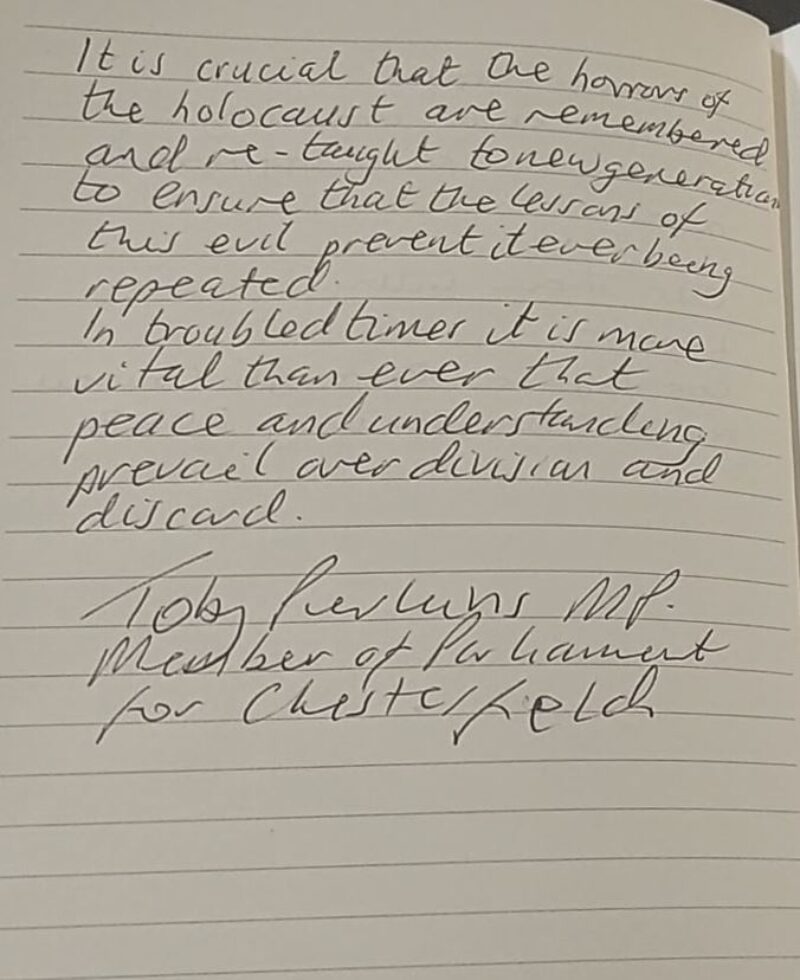 It is crucial that the horrors of
the holocaust are remembered
and re-taught to new generation
to ensure that the lessons of
this evil prevent it ever being
repeated.
In troubled times it is more
vital than ever that
peace and understanding
prevail over division and
discord.
Toby Perkins MP.
Member of Parliament
for Chesterfield